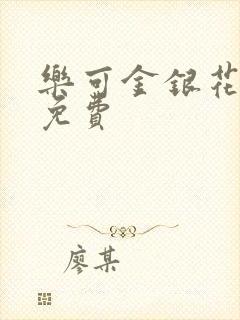 樂可金銀花
免費
廖某